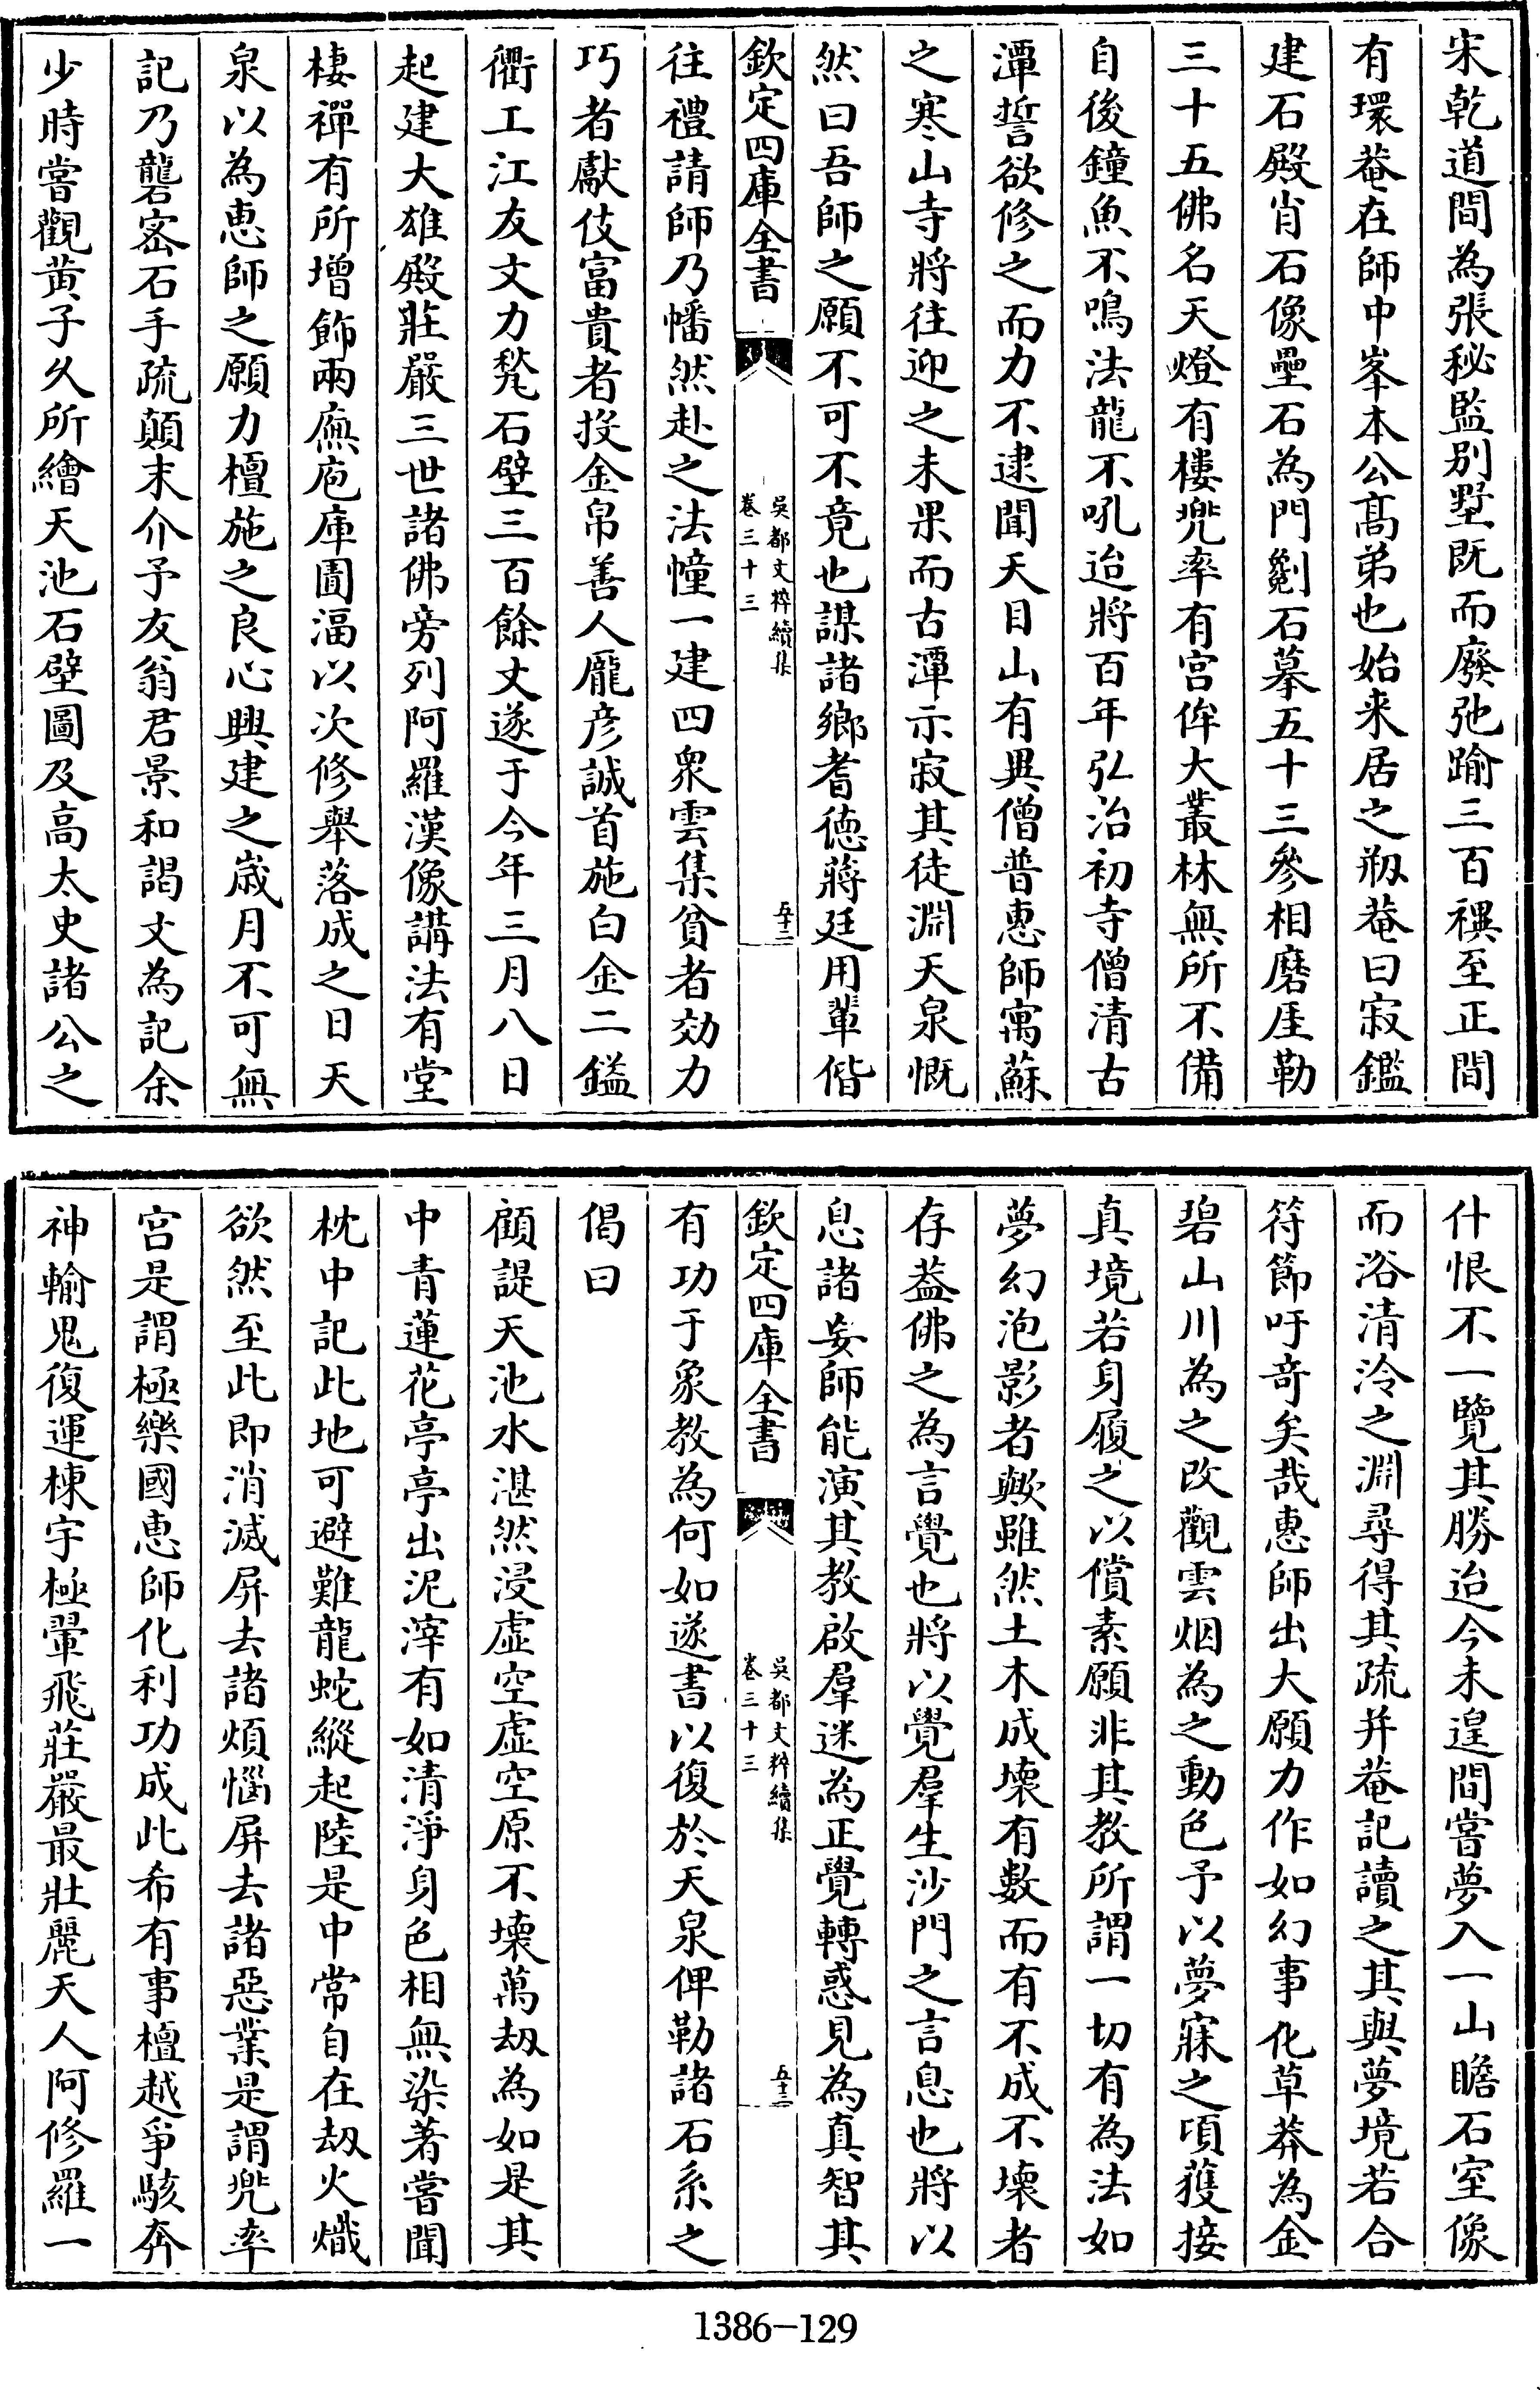 宋乾道間為張秘監别墅既而廢弛踰三百禩至正間
有環菴在師中峯本公髙弟也始来居之剏菴曰寂鑑
建石殿肖石像壘石為門劖石摹五十三參相磨厓勒
三十五佛名天燈有樓兜率有宫侔大叢林無所不備
自後鐘魚不鳴法龍不吼迨將百年弘治初寺僧清古
潭誓欲修之而力不逮聞天目山有異僧普惠師寓蘇
之寒山寺將往迎之未果而古潭示寂其徒淵天泉慨
然曰吾師之願不可不竟也謀諸鄉耆徳蔣廷用輩偕
欽定四庫全書
吳都文粹續集
卷三十三
五十二
往禮請師乃幡然赴之法幢一建四衆雲集貧者効力
巧者獻伎富貴者投金帛善人龐彦誠首施白金二鎰
衢工江友文力甃石壁三百餘丈遂于今年三月八日
起建大雄殿莊嚴三世諸佛旁列阿羅漢像講法有堂
棲禪有所增飾兩廡庖庫圊湢以次修舉落成之日天
泉以為惠師之願力檀施之良心興建之歳月不可無
記乃礱密石手疏顛末介予友翁君景和謁文為記余
少時嘗觀黄子久所繪天池石壁圖及高太史諸公之
什恨不一覽其勝迨今未遑間嘗夢入一山瞻石室像
而浴清泠之淵尋得其疏并菴記讀之其與夢境若合
符節吁奇矣哉惠師出大願力作如幻事化草莽為金
碧山川為之改觀雲烟為之動色予以夢寐之頃獲接
真境若身履之以償素願非其教所謂一切有為法如
夢幻泡影者歟雖然土木成壊有數而有不成不壊者
存葢佛之為言覺也將以覺羣生沙門之言息也將以
息諸妄師能演其教啟羣迷為正覺轉惑見為真智其
欽定四庫全書
吳都文粹續集
卷三十三
五十三
有功于象教為何如遂書以復於天泉俾勒諸石系之
偈曰
顧諟天池水湛然浸虚空虚空原不壊萬刼為如是其
中青蓮花亭亭出泥滓有如清淨身色相無染著嘗聞
枕中記此地可避難龍蛇縱起陸是中常自在刼火熾
欲然至此即消滅屏去諸煩惱屏去諸惡業是謂兜率
宫是謂極樂國惠師化利功成此希有事檀越爭駭奔
神輸鬼復運棟宇極翬飛莊嚴最壯麗天人阿修羅一
1386-129